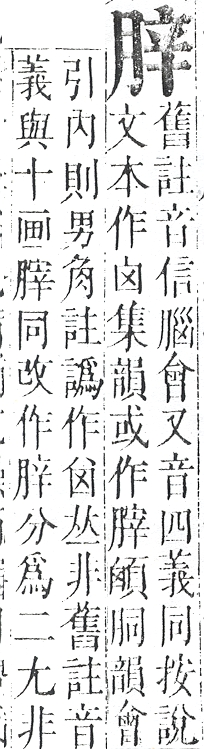 舊註音信腦會又音四義同按說
文本作囟集韻或作𦞤䪿胴韻會
引內則男角註譌作囪𠀤非舊註音
義與十画𦞤同改作分爲二尤非